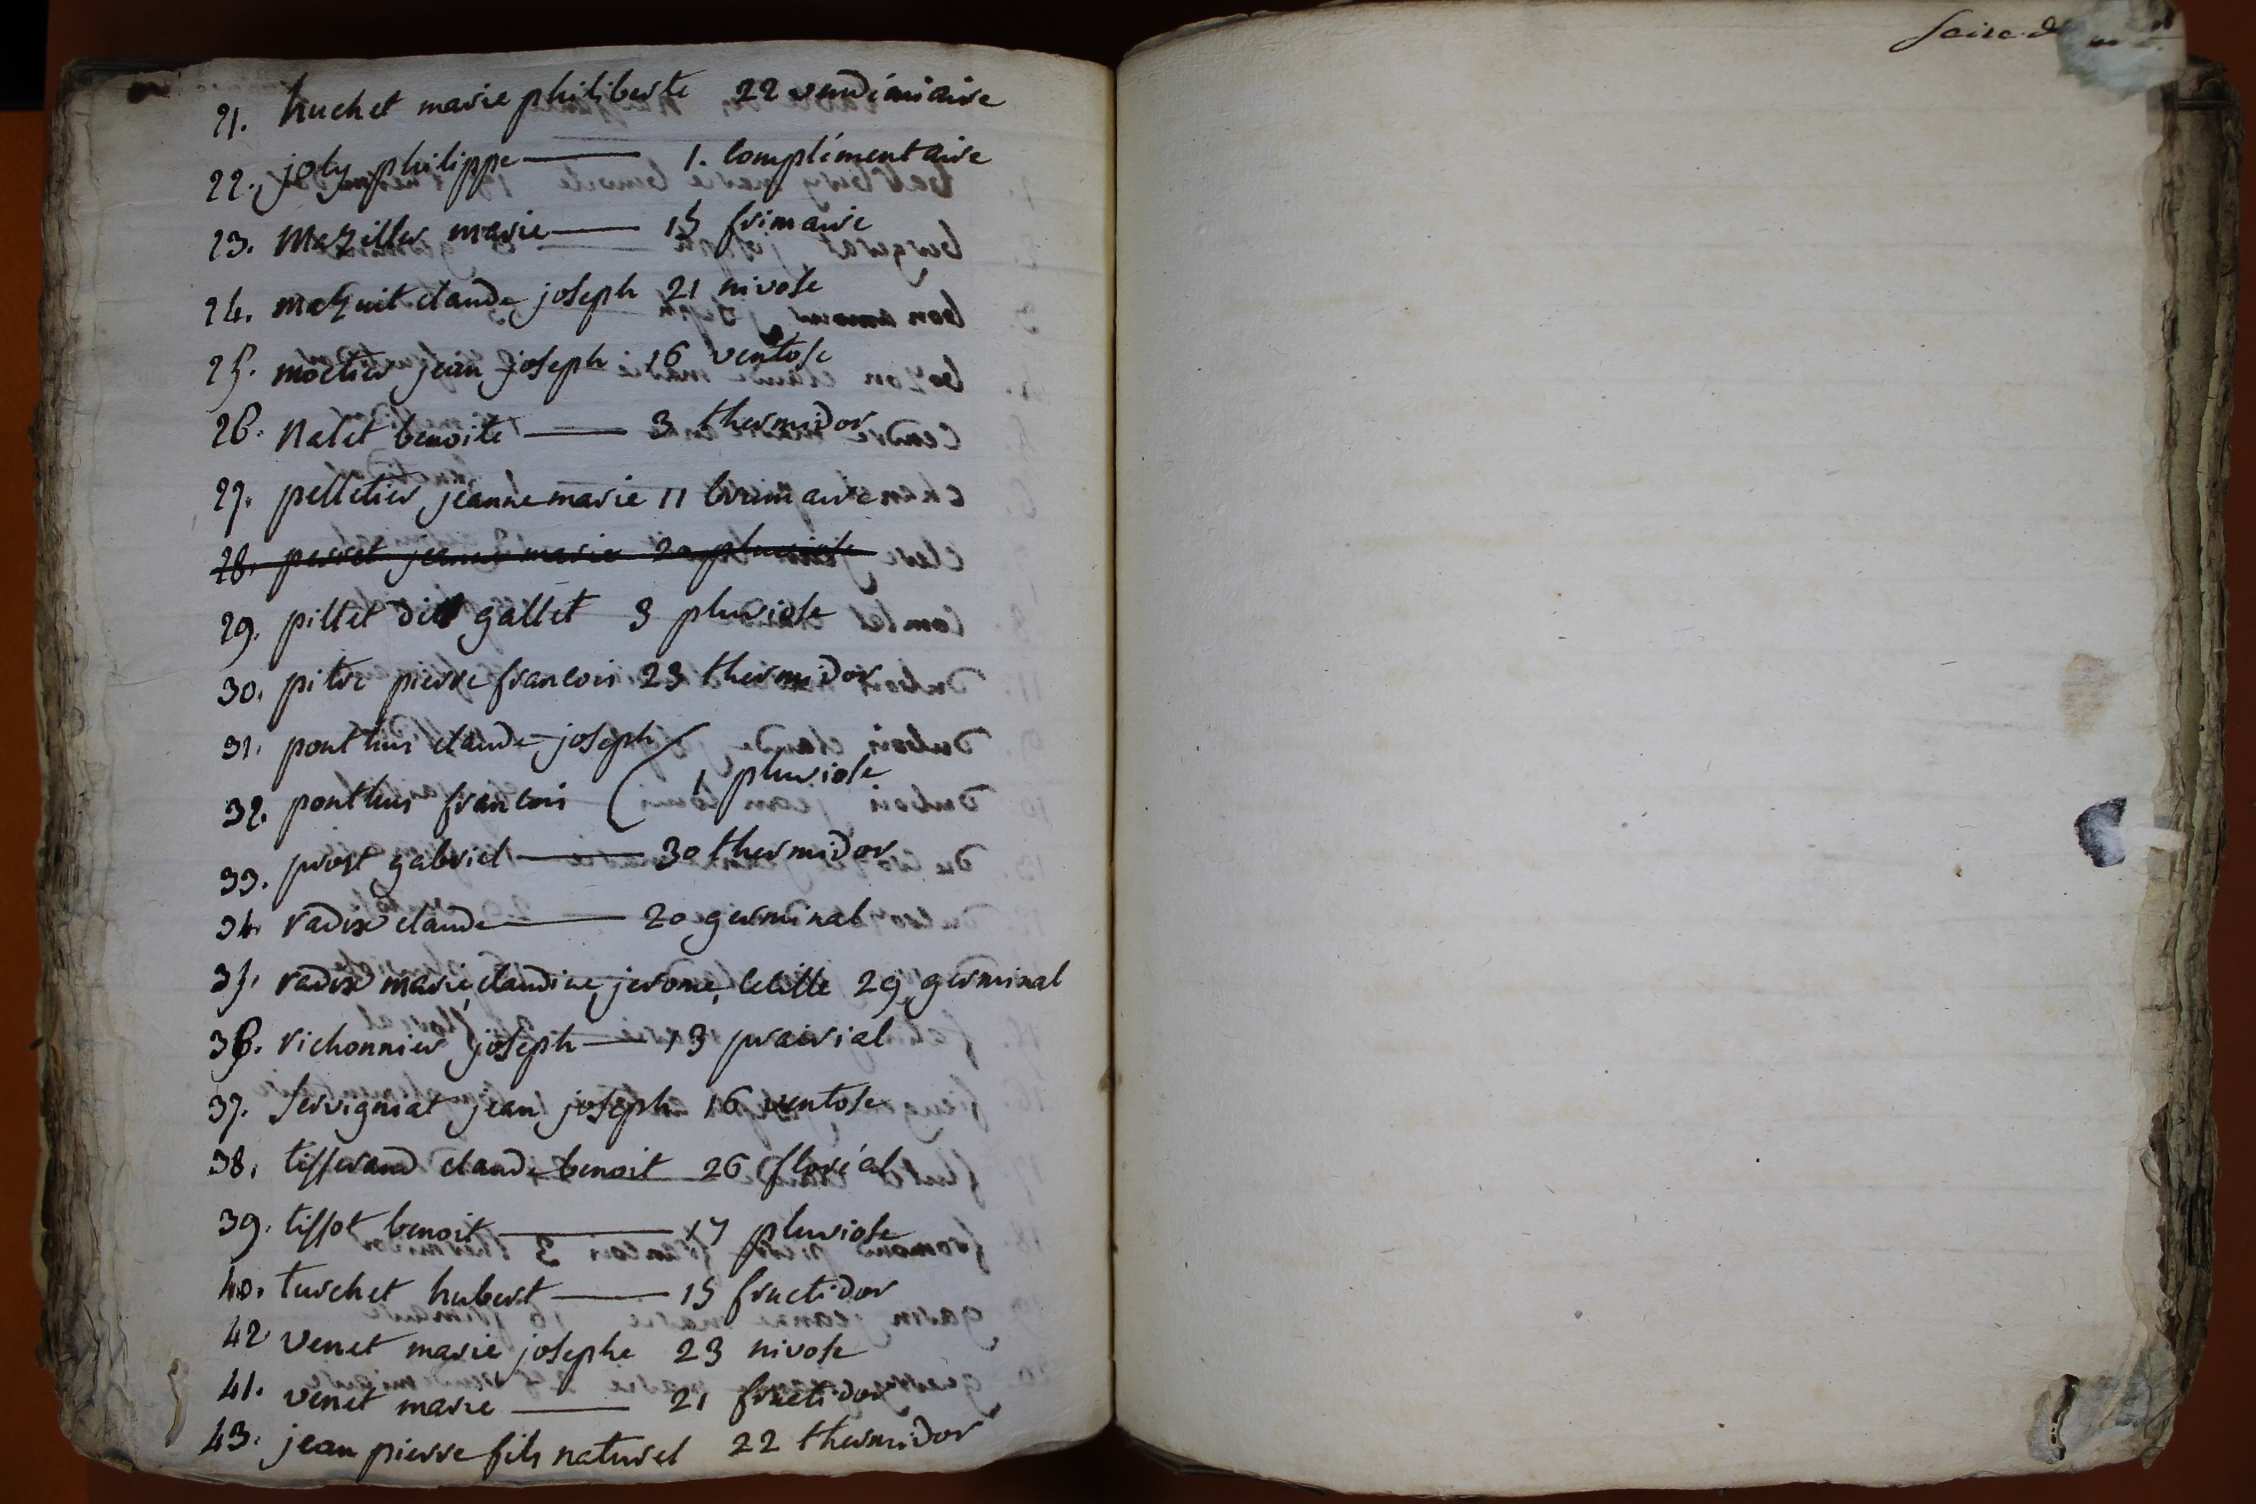 21. huchet marie philiberte 22 vendémiaire
22. joly philippe — 1. complémentaire
23. Maziller marie — 15 frimaire
24. mazuit claude joseph 21 nivose
25. moctier jean joseph 16 ventose
26. Nalet benoite — 3 thermidor
27. pelletier jeanne marie 11 brumaire
28. perret jeanne marie 20 pluviose
29. pillet dit gallet 3 pluviose
30. pitre pierre francois 23 thermidor
31. ponthus claude joseph
1 pluviose
32. ponthus francois
33. prost gabriel — 30 thermidor
34. radix claude — 20 germinal
35. radix marie, claudine, jerome, cecille 29 germinal
36. richonnier joseph — 13 prairial
37. Servigniat jean joseph 16 ventose
38. tisserand claude benoit 26 floréal
39. tissot benoit — 17 pluviose
40. turchet hubert — 15 fructidor
42 venet marie josephe 23 nivose
41. venet marie — 21 fructidor
43. jean pierre fils naturel 22 thermidor